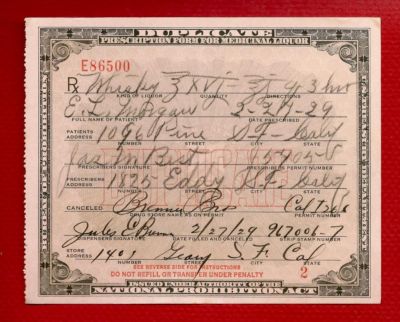 DUPLICATE
PRESCRIPTION FORM FOR MEDICINAL LIQUOR
E86500
Rx Whiskey 3 XVI 3 hrs
KIND OF LIQUOR QUANTITY DIRECTIONS
E. L. 2-27-29
FULL NAME OF PATIENT DATE PRESCRIBED
PATIENTS ADDRESS 1096 Pine S.F. Calif
NUMBER STREET CITY STATE
Best
PRESCRIBERS SIGNATURE PERMIT NUMBER
PRESCRIBERS ADDRESS 1825 Eddy S.F. Calif
NUMBER STREET CITY STATE
CANCELED Bros Cal
DRUG STORE NAME AS ON PERMIT PERMIT NUMBER
Jules E. 2/27/29 967006-7
DISPENSERS SIGNATURE DATE FILLED AND CANCELED STRIP STAMP NUMBER
STORE ADDRESS 1401 Geary S. F. Cal
NUMBER STREET CITY STATE
SEE REVERSE SIDE FOR INSTRUCTIONS
DO NOT REFILL OR TRANSFER UNDER PENALTY 2
ISSUED UNDER AUTHORITY OF THE
NATIONAL PROHIBITION ACT